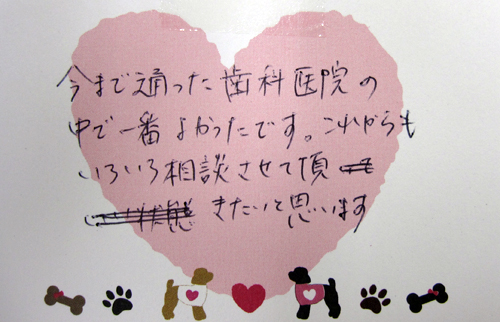 今まで通った歯科医院の
中で一番よかったです。これからも
いろいろ相談させて頂
きたいと思います